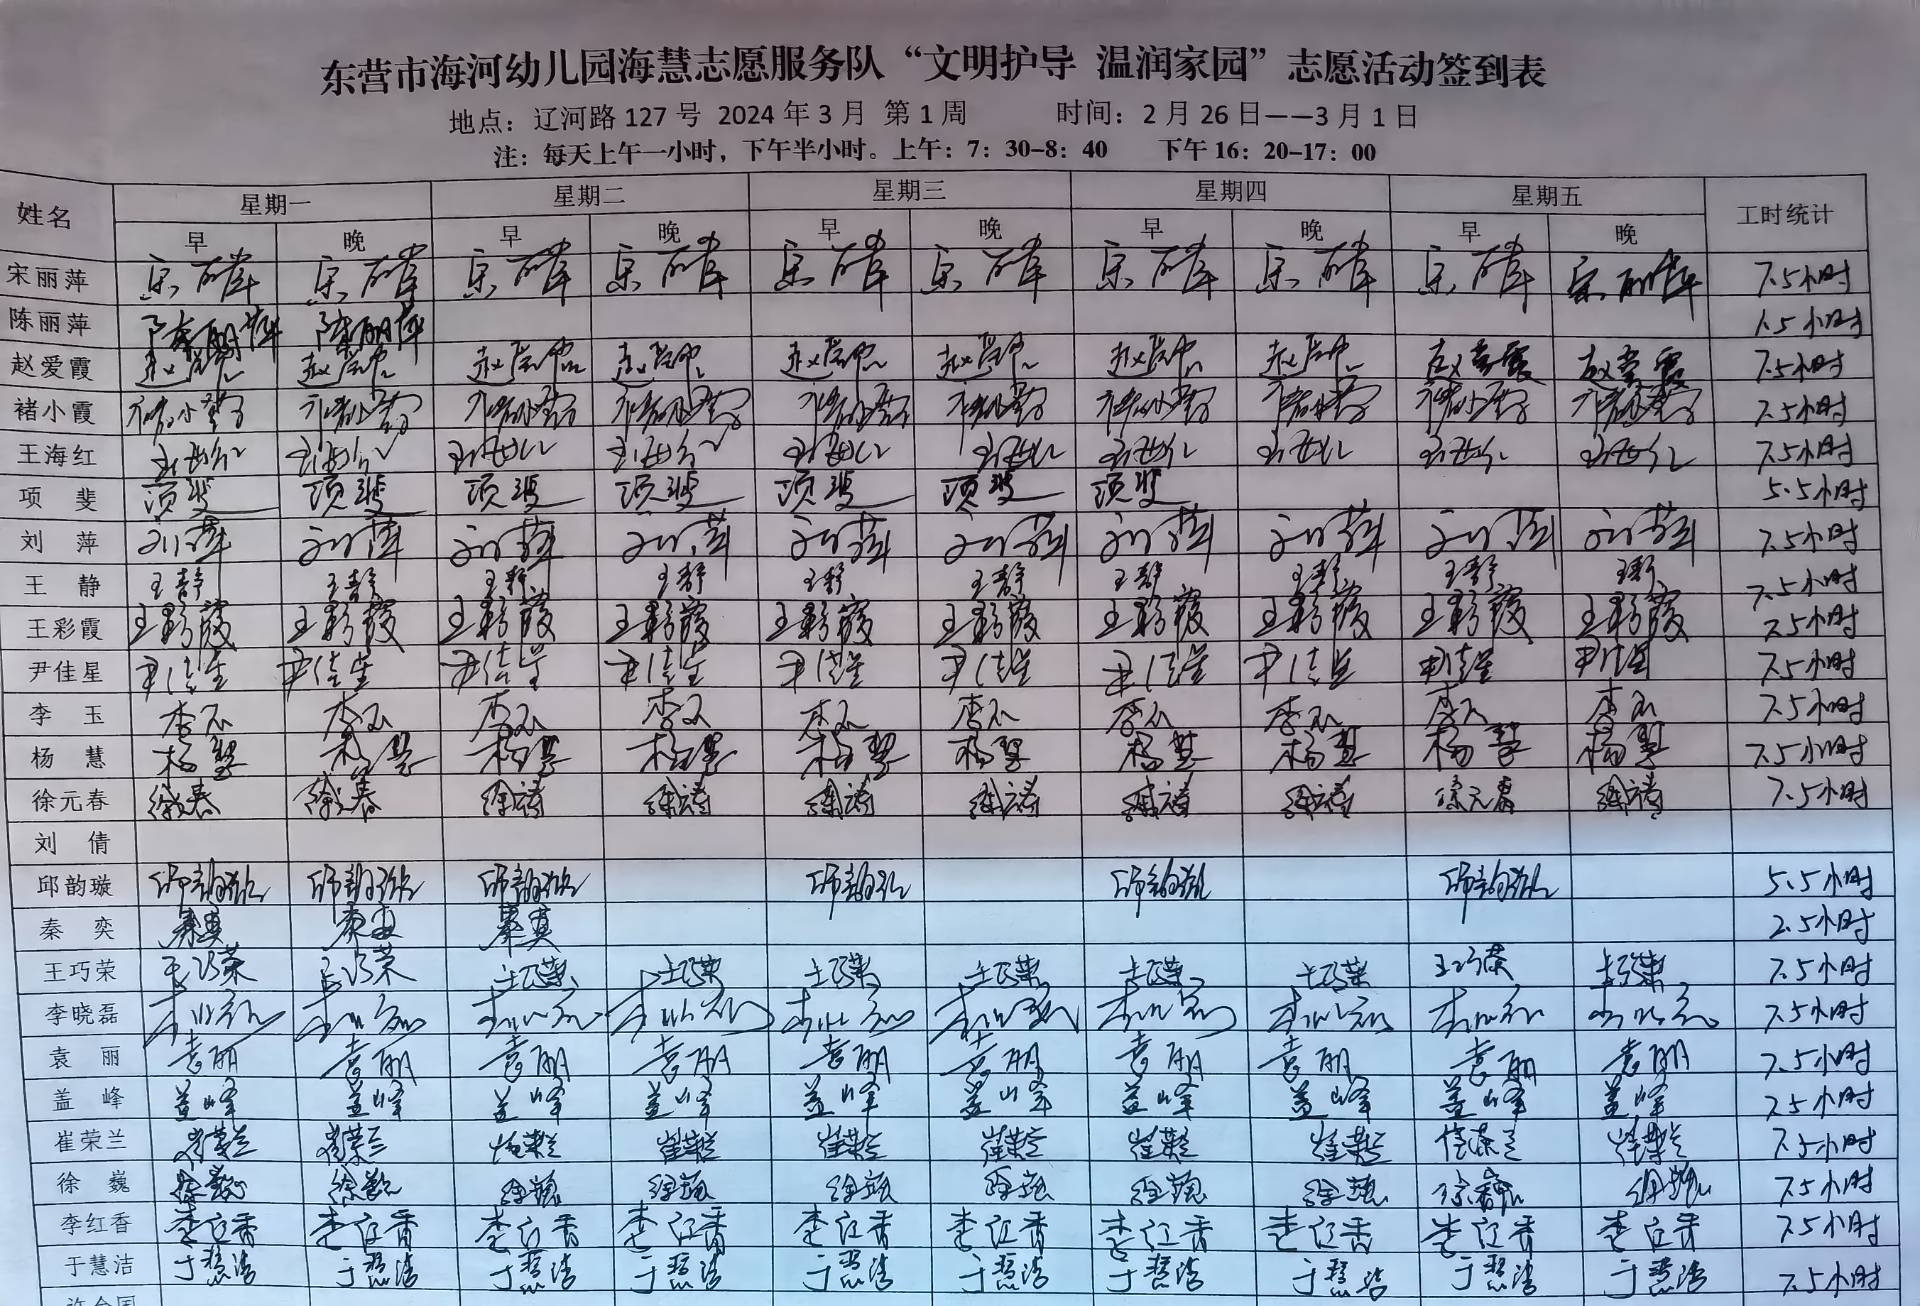 东营市海河幼儿园海慧志愿服务队“文明护导 温润家园”志愿活动签到表
地点：辽河路127号 2024年3月 第1周 时间：2月26日——3月1日
注：每天上午一小时，下午半小时。上午：7：30-8：40 下午16：20-17：00
姓名 星期一 星期二 星期三 星期四 星期五 工时统计
早 晚 早 晚 早 晚 早 晚 早 晚
宋丽萍 宋丽萍 宋丽萍 宋丽萍 宋丽萍 宋丽萍 宋丽萍 宋丽萍 宋丽萍 宋丽萍 宋丽萍 7.5小时
陈丽萍 陈丽萍 陈丽萍 1.5小时
赵爱霞 赵爱霞 赵爱霞 赵爱霞 赵爱霞 赵爱霞 赵爱霞 赵爱霞 赵爱霞 赵爱霞 赵爱霞 7.5小时
褚小霞 褚小霞 褚小霞 褚小霞 褚小霞 褚小霞 褚小霞 褚小霞 褚小霞 褚小霞 褚小霞 7.5小时
王海红 王海红 王海红 王海红 王海红 王海红 王海红 王海红 王海红 王海红 王海红 7.5小时
项斐 项斐 项斐 项斐 项斐 项斐 项斐 项斐 5.5小时
刘萍 刘萍 刘萍 刘萍 刘萍 刘萍 刘萍 刘萍 刘萍 刘萍 刘萍 7.5小时
王静 王静 王静 王静 王静 王静 王静 王静 王静 王静 王静 7.5小时
王彩霞 王彩霞 王彩霞 王彩霞 王彩霞 王彩霞 王彩霞 王彩霞 王彩霞 王彩霞 王彩霞 7.5小时
尹佳星 尹佳星 尹佳星 尹佳星 尹佳星 尹佳星 尹佳星 尹佳星 尹佳星 尹佳星 尹佳星 7.5小时
李玉 李玉 李玉 李玉 李玉 李玉 李玉 李玉 李玉 李玉 李玉 7.5小时
杨慧 杨慧 杨慧 杨慧 杨慧 杨慧 杨慧 杨慧 杨慧 杨慧 杨慧 7.5小时
徐元春 徐元春 徐元春 徐元春 徐元春 徐元春 徐元春 徐元春 徐元春 徐元春 徐元春 7.5小时
刘倩
邱韵璇 邱韵璇 邱韵璇 邱韵璇 邱韵璇 邱韵璇 邱韵璇 5.5小时
秦奕 秦奕 秦奕 秦奕 2.5小时
王巧荣 王巧荣 王巧荣 王巧荣 王巧荣 王巧荣 王巧荣 王巧荣 王巧荣 王巧荣 王巧荣 7.5小时
李晓磊 李晓磊 李晓磊 李晓磊 李晓磊 李晓磊 李晓磊 李晓磊 李晓磊 李晓磊 李晓磊 7.5小时
袁丽 袁丽 袁丽 袁丽 袁丽 袁丽 袁丽 袁丽 袁丽 袁丽 袁丽 7.5小时
盖峰 盖峰 盖峰 盖峰 盖峰 盖峰 盖峰 盖峰 盖峰 盖峰 盖峰 7.5小时
崔荣兰 崔荣兰 崔荣兰 崔荣兰 崔荣兰 崔荣兰 崔荣兰 崔荣兰 崔荣兰 崔荣兰 崔荣兰 7.5小时
徐巍 徐巍 徐巍 徐巍 徐巍 徐巍 徐巍 徐巍 徐巍 徐巍 徐巍 7.5小时
李红香 李红香 李红香 李红香 李红香 李红香 李红香 李红香 李红香 李红香 李红香 7.5小时
于慧洁 于慧洁 于慧洁 于慧洁 于慧洁 于慧洁 于慧洁 于慧洁 于慧洁 于慧洁 于慧洁 7.5小时